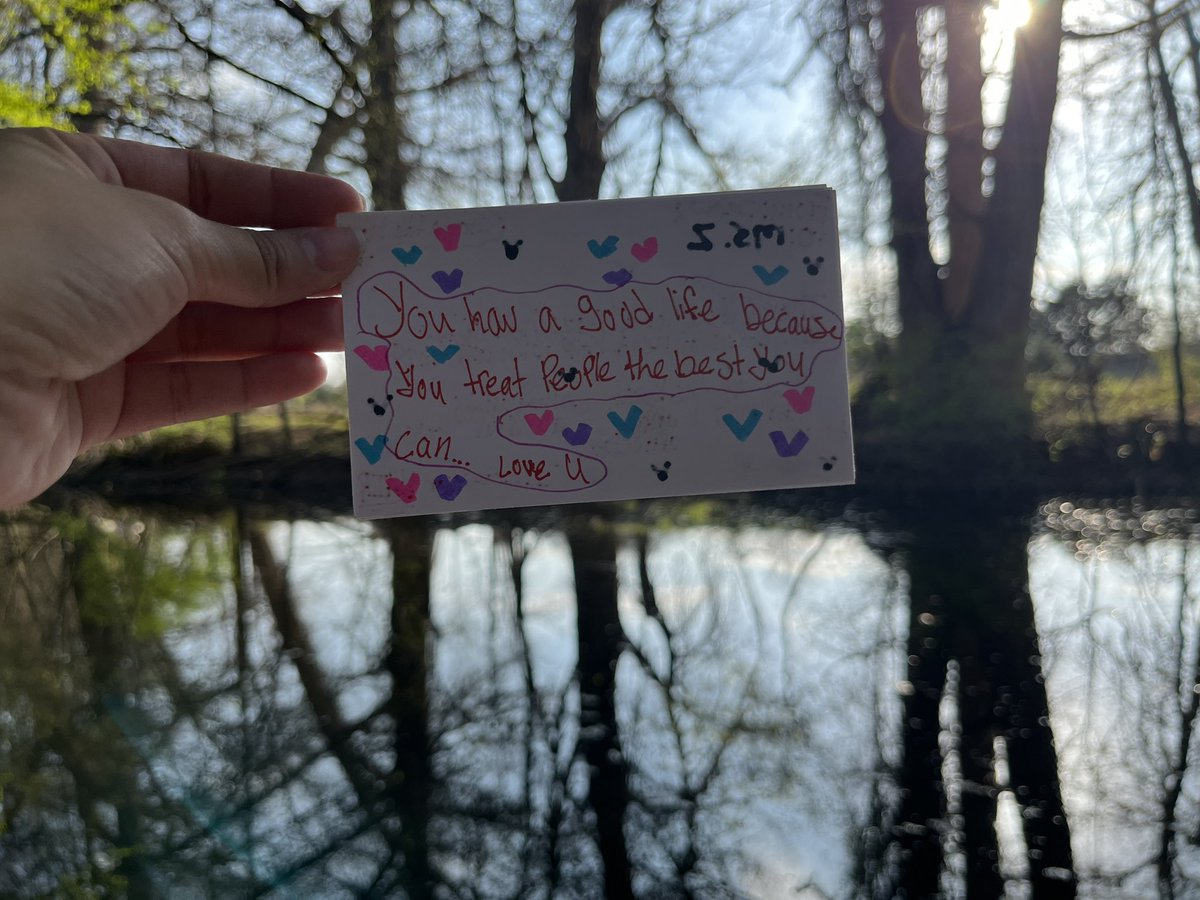 Ms. Z
You hav a good life because
You treat People the best you
can... Love U